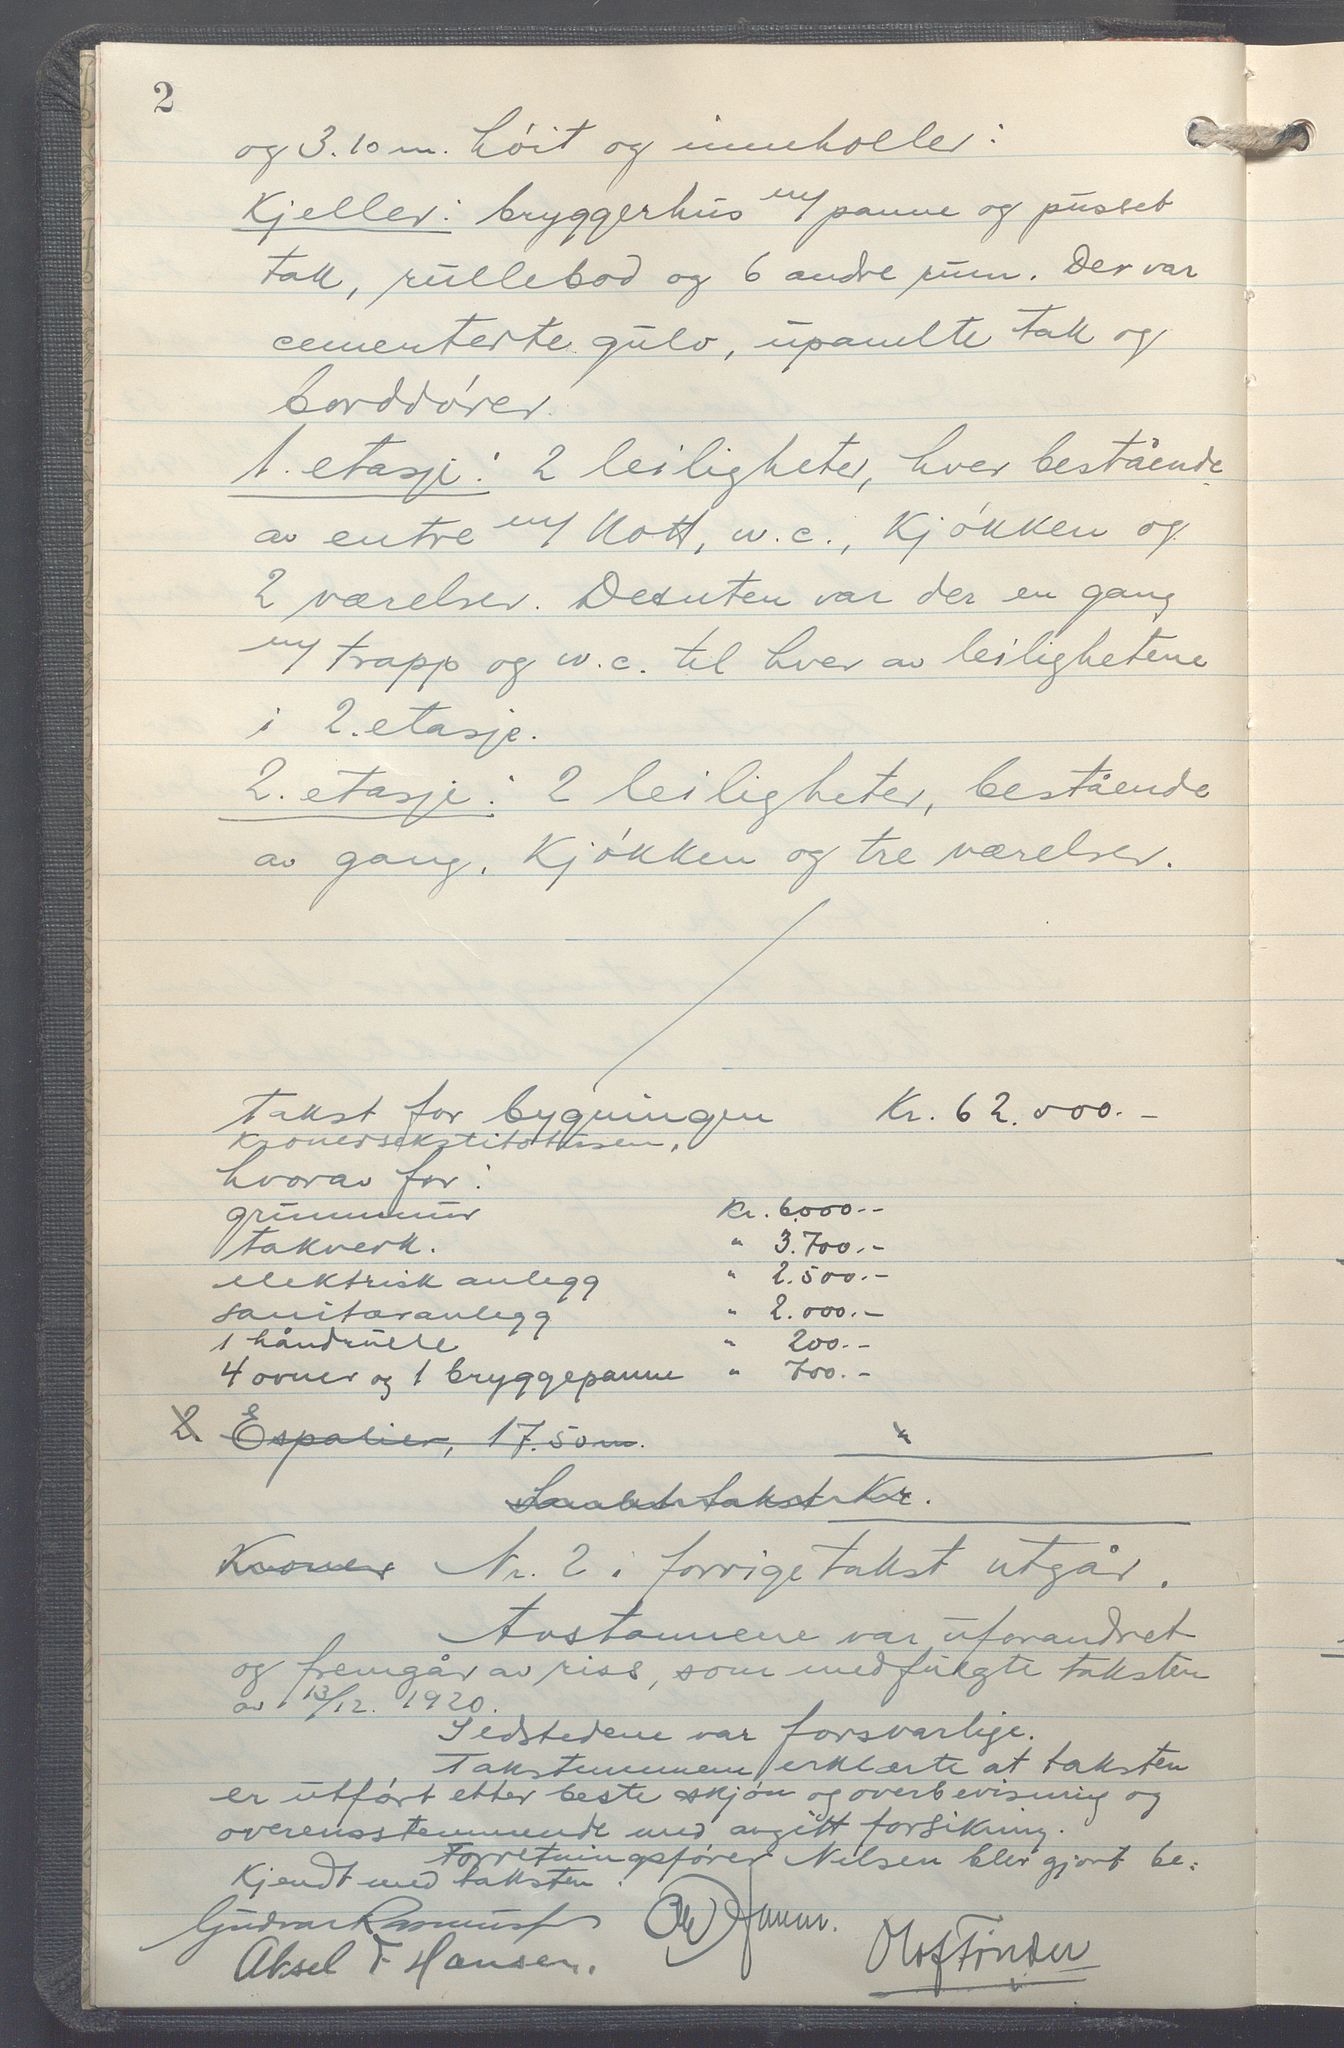 2
og 3.10 m. höit og inneholder:
Kjeller: bryggerhus m/ panne og pusset
tak, rullebod og 6 andre rum. Der var
cementerte gulv, upanelte tak og
borddører.
1. etasje: 2 leiligheter, hver bestående
av entre m/ kott, w.c., kjøkken og
2 værelser. Desuten var der en gang
m/ trapp og w.c. til hver av leilighetene
i 2. etasje.
2. etasje: 2 leiligheter, bestående
av gang, kjøkken og tre værelser.
Takst for bygningen Kr. 62.000.-
Kronersekstitotusen,
hvorav for:
grunnmur Kr. 6000.--
takverk. " 3.700.-
elektrisk anlegg " 2.500.-
sanitæranlegg " 2.000.-
1 håndrulle " 200.-
4 ovner og 1 bryggepanne " 700.-
2. Espalier, 17.50 m. "
Samlet takst Kr.
Kroner Nr. 2 i forrige takst utgår.
Avstannene var uforandret
og fremgår av riss, som medfulgte taksten
av 13/12. 1920.
Ildstedene var forsvarlige.
Takstmennene erklærte at taksten
er utført etter beste skjøn og overbevisning og
overensstemmende med avgitt forsikring.
Forretningsfører Nilsen blev gjort be=
kjendt med taksten.
Gudvar Rasmussen
Aksel F Hansen.
Olaf Tönder